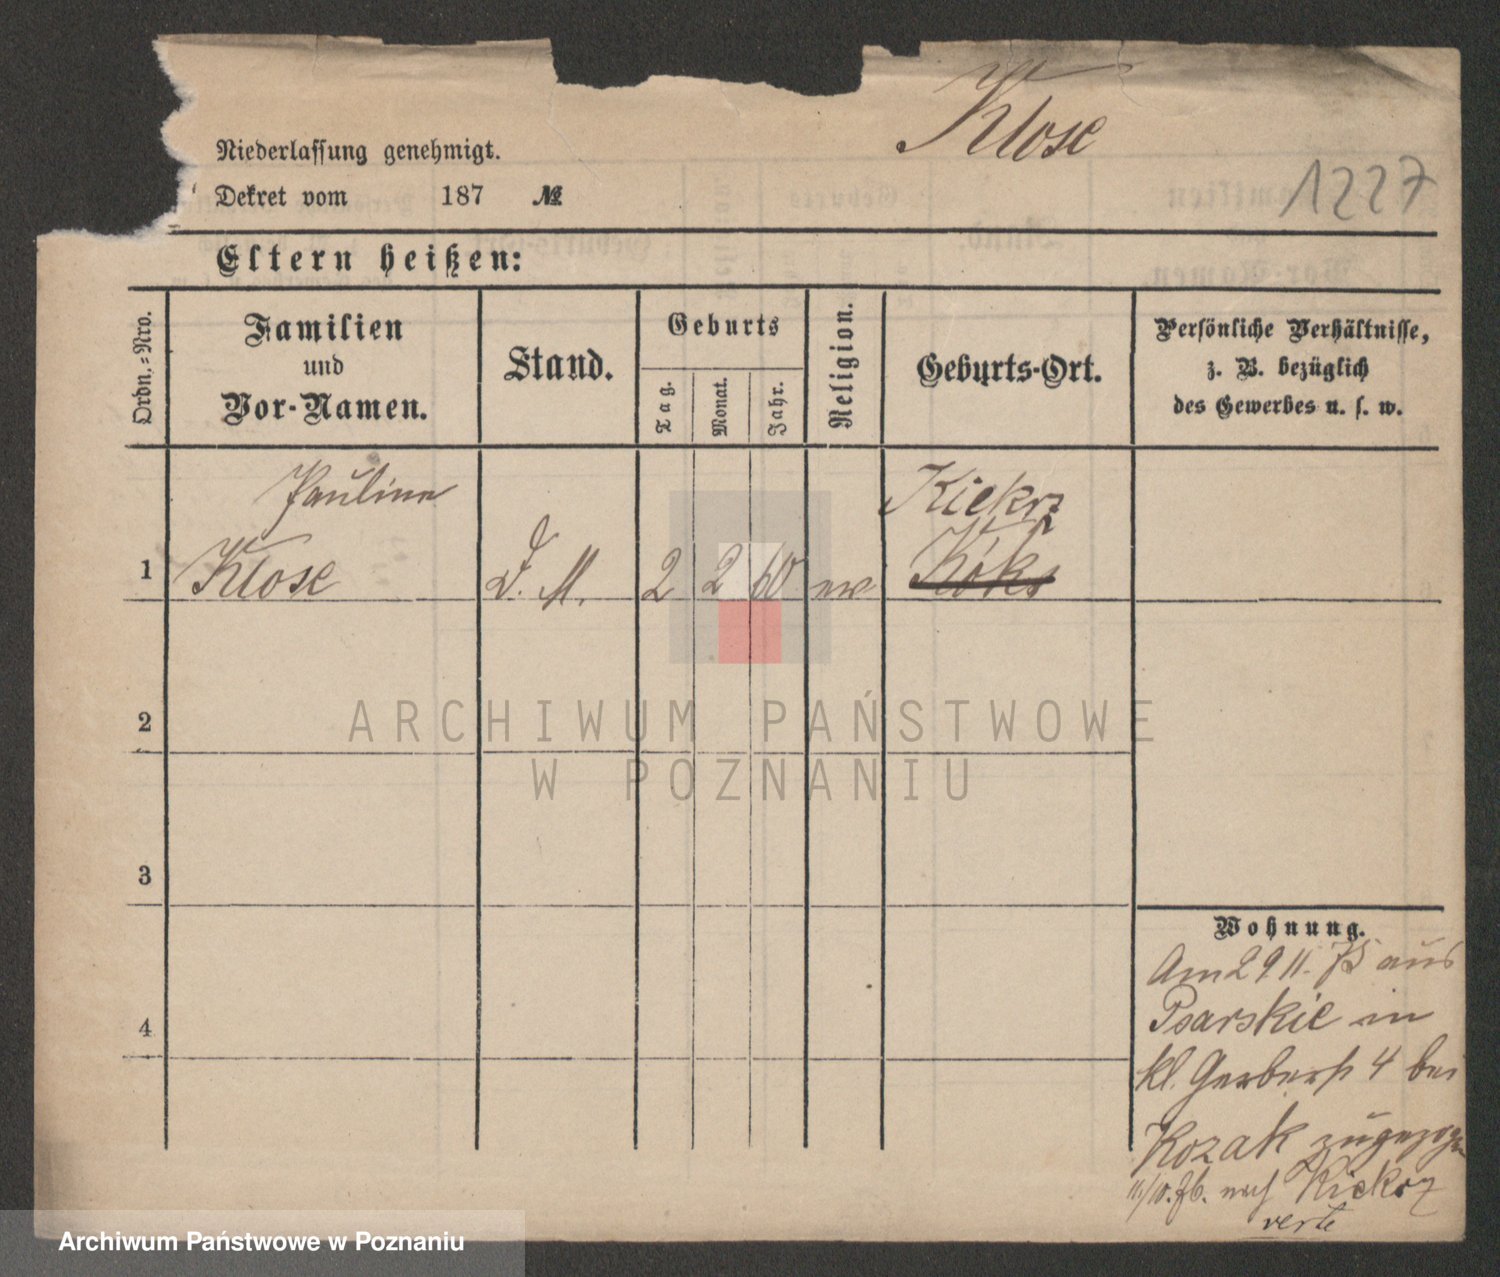 Klose
1227
Niederlassung genehmigt.
Dekret vom 187 №
Eltern heißen:
Ordn.-Nro.
Familien
und
Vor-Namen.
Stand.
Geburts
Tag.
Monat.
Jahr.
Religion.
Geburts-Ort.
Persönliche Verhältnisse,
z. B. bezüglich
des Gewerbes u. s. w.
Pauline
Kiekrz
1 Klose D. M. 2 2 60 ev
2
3
4
Wohnung.
Am 29 11. 75 aus
Psarskie in
kl. Gerberst 4 bei
Kozak zugezogen
11/10. 76. nach Kiekrz
verte
ARCHIWUM PAŃSTWOWE
W POZNANIU
Archiwum Państwowe w Poznaniu